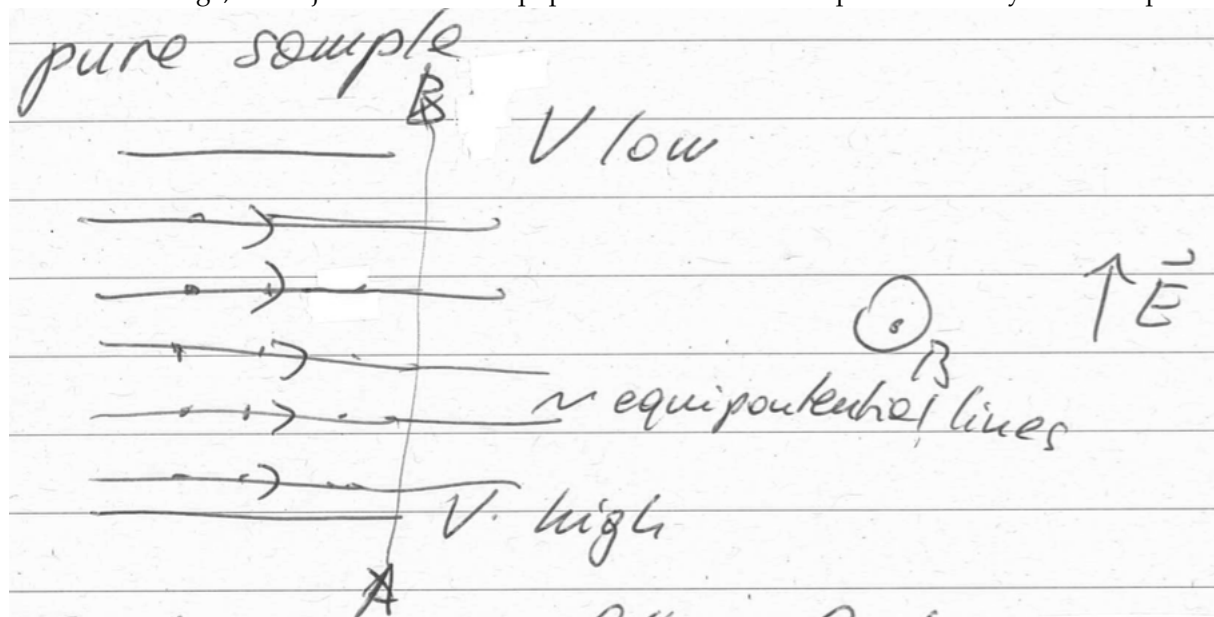 pure sample
B
V low
E
B
~ equipontential lines
V. high
A